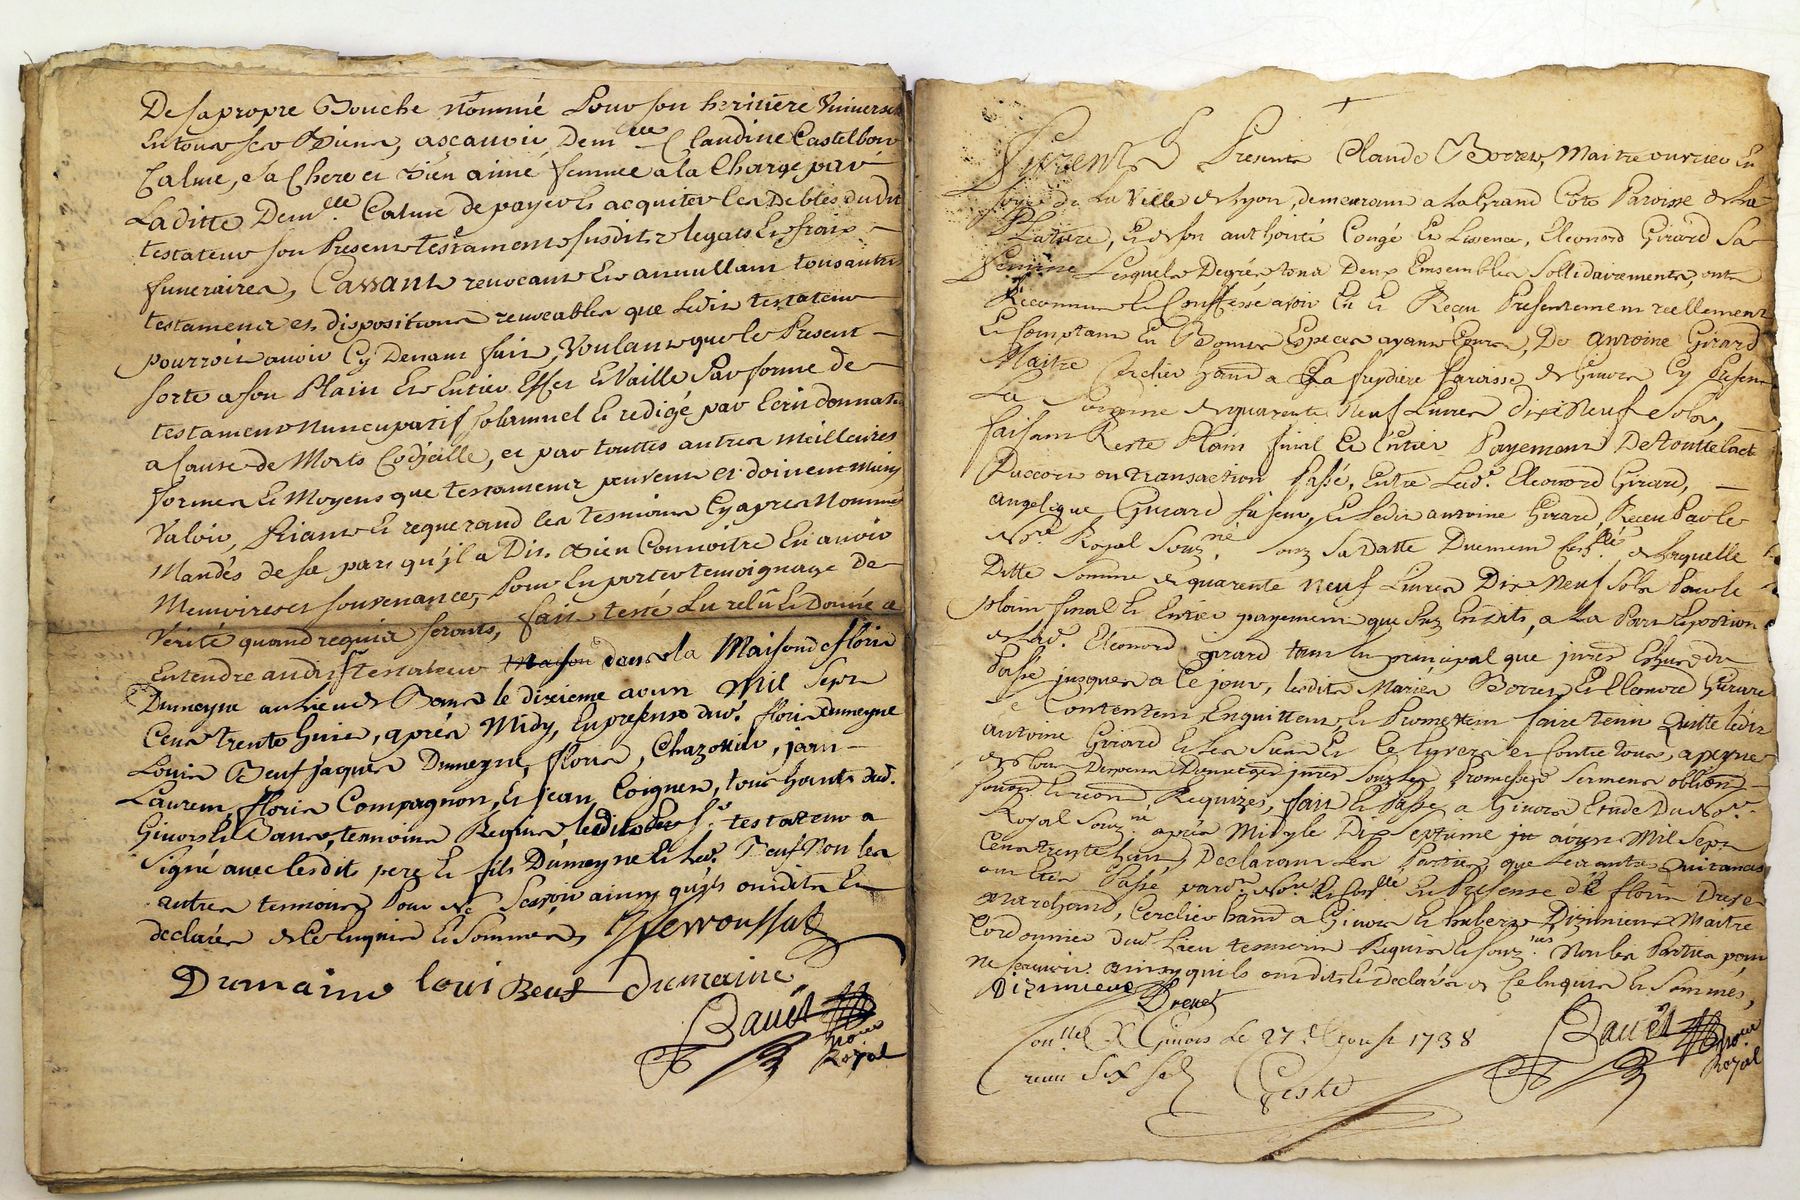 De sa propre Bouche nommé Pour son heritiere Universelle
En tous ses Biens, asçavoir Dem.lle Claudine Castelbon
Calme, sa Chere et Bien aimé femme a la Charge par
Laditte Dem.lle Calme de payer Et acquiter les Debtes dudit
testateur son Present testament susdits legats Et fraix
funeraires, Cassant revocant Et annullant tous autres
testaments et dispositions revocables que Ledit testateur
pourroit avoir Cy Devant fait, Voulant que le Present
sorte a son Plain Et Entier Effet Et Vaille Par forme de
testament Nuncupatif solamnel Et redigé par Ecrit donnation
a Cause de Morts Codicille, et par touttes autres meilleures
formes Et Moyens que testaments peuvent et doivent mieux
Valoir, Priant Et requerand les tesmoins Cy apres Nommés
Mandés de sa part qu'il a Dit Bien Connoitre En avoir
Memoire et souvenance, Pour En porter temoignage de
Verité quand requis seronts, fait testé Lu relû Et Donné a
Entendre audit S.r testateur dans la Maison de floris
Dumeyne au Lieu de Bans le dixieme aoust Mil Sept
Cent trente huit, aprés Midy, En presence dud.t floris dumeyne
Louis Beuf jacques Dumeyne, floris, Chazottier, jean
Laurent, floris Compagnon, Et jean Coignet, tous habitants dud.t
Givors Et Bans, temoins Requis S.r testateur a
Signé avec lesdits pere Et fils Dumeyne Et led.t Beuf Non les
autres temoins Pour Ne Sçavoir ainsy qu'ils ont dit Et
declarés de Ce Enquis Et Sommés
Dumaine loui Beuf dumeine
Bauét
No.re
Royal
Furent Presents Claude Borret, Maitre ouvrier En
soye de La Ville de Lyon, demeurant a La Grand Côte Paroisse de La
Plature, Et de son authorité Congé Et Licence, Eleonord Girard Sa
femme Lesquels Degrés tous Deux Ensembles Sollidairements, ont
Reconnu Et Confessé avoir Eu Et Reçu Presentement reellement
Et Comptant En Bonnes Especes ayant Cours, De antoine Girard
Maitre Cerclier hanb a La freydiere Paroisse de Givors Cy Present
La Somme de quarente Neuf Livres dix Neuf Sols,
faisant Reste Plain final Et Entier Payement De toutte l'acte
D'accort ou transaction Passé, Entre Lad.e Eleonord Girard,
angelique Girard sa sœur, Et Ledit antoine Girard, Receu Par le
No.re Royal Souz.né Souz Sa Datte Duement Con.llé de Laquelle
Ditte Somme de quarente neuf Livres Dix Neuf Sols Pour le
plain final Et Entier payement que Suz Est dits, a La Part Et portion
de Lad.e Eleonord girard tant En principal que jnterests Echus du
Passé jusques a Ce jour, lesdits Mariés Borret Et Eleonord Girard
Se Contentent, En quittent Et Promettent faire tenir Quitte Ledit
antoine Girard Et Les Siens Et Ce Envers et Contre tous, a peyne
de tous Depens Dommages jnterests Souz Les Promesses Serment oblion
Royal Souz.né aprés Midy le Dix Septieme aoust Mil Sept
Cent trente huit, Declarant Les Parties que Les autres Quittances
ont Etés Passé pard.t No.re En Presence de floris Drevet
marchand, Cerclier hanb a Givors Et hubert Dizimieux Maitre
Cordonnier dud.t Lieu temoins Requis Et Souz.nés Non les Parties pour
ne Sçavoir ainsy qu'ils ont dit Et declarés de Ce Enquis Et Sommés,
Dizimieux Drevet
Con.llé A Givors Le 27.e Aoust 1738
receu Six Sols
Bauét
No.re
Royal